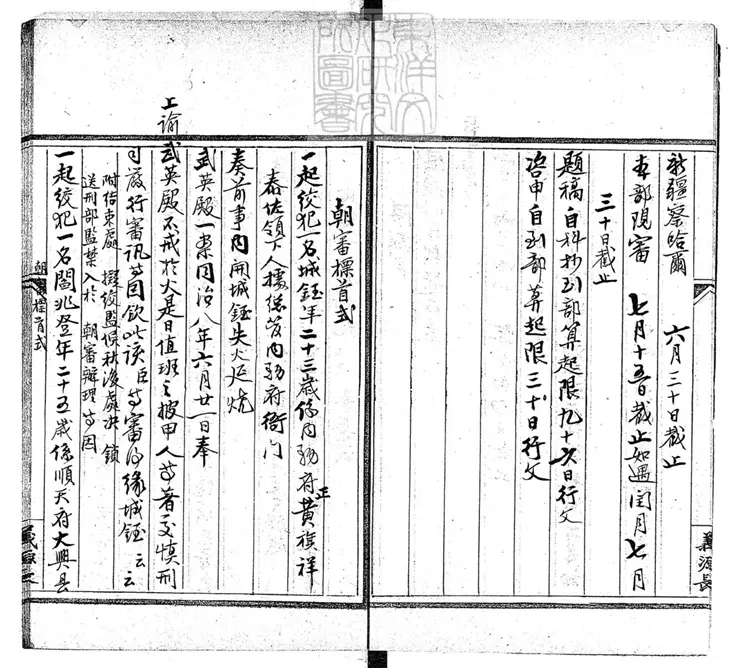 新疆察哈爾　六月三十日截止
本部現審　七月十五日截止如遇閏月七月
三十日截止
題稿自科抄到部算起限九十日行文
咨申自到部算起限三十日行文
朝審標首式
一起絞犯一名城鈺年二十三歲係內務府正黃旗祥
泰佐領下人據總管內務府衙門
奏前事內開城鈺失火延燒
武英殿一案同治八年六月廿一日奉
上諭武英殿不戒於火是日值班之披甲人等著交慎刑
司嚴行審訊等因欽此該臣等審得緣城鈺云云
附結束處　擬絞監候秋後處決鎖
送刑部監禁入於　朝審辦理等因
一起絞犯一名閻兆登年二十五歲係順天府大興縣
朝審標首式
義源長
東洋文
化研究
所圖書